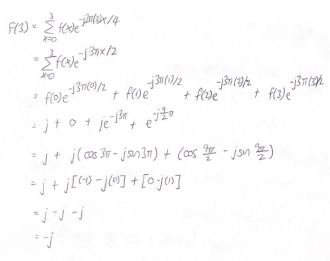 F(3) = \sum_{x=0}^{3} f(x)e^{-j2π(3)x/4}
= \sum_{x=0}^{3} f(x)e^{-j3πx/2}
= f(0)e^{-j3π(0)/2} + f(1)e^{-j3π(1)/2} + f(2)e^{-j3π(2)/2} + f(3)e^{-j3π(3)/2}
= j + 0 + je^{-j3π} + e^{-j\frac{9}{2}π}
= j + j(cos 3π - jsin 3π) + (cos \frac{9π}{2} - jsin \frac{9π}{2})
= j + j[(-1) - j(0)] + [0 - j(1)]
= j - j - j
= -j